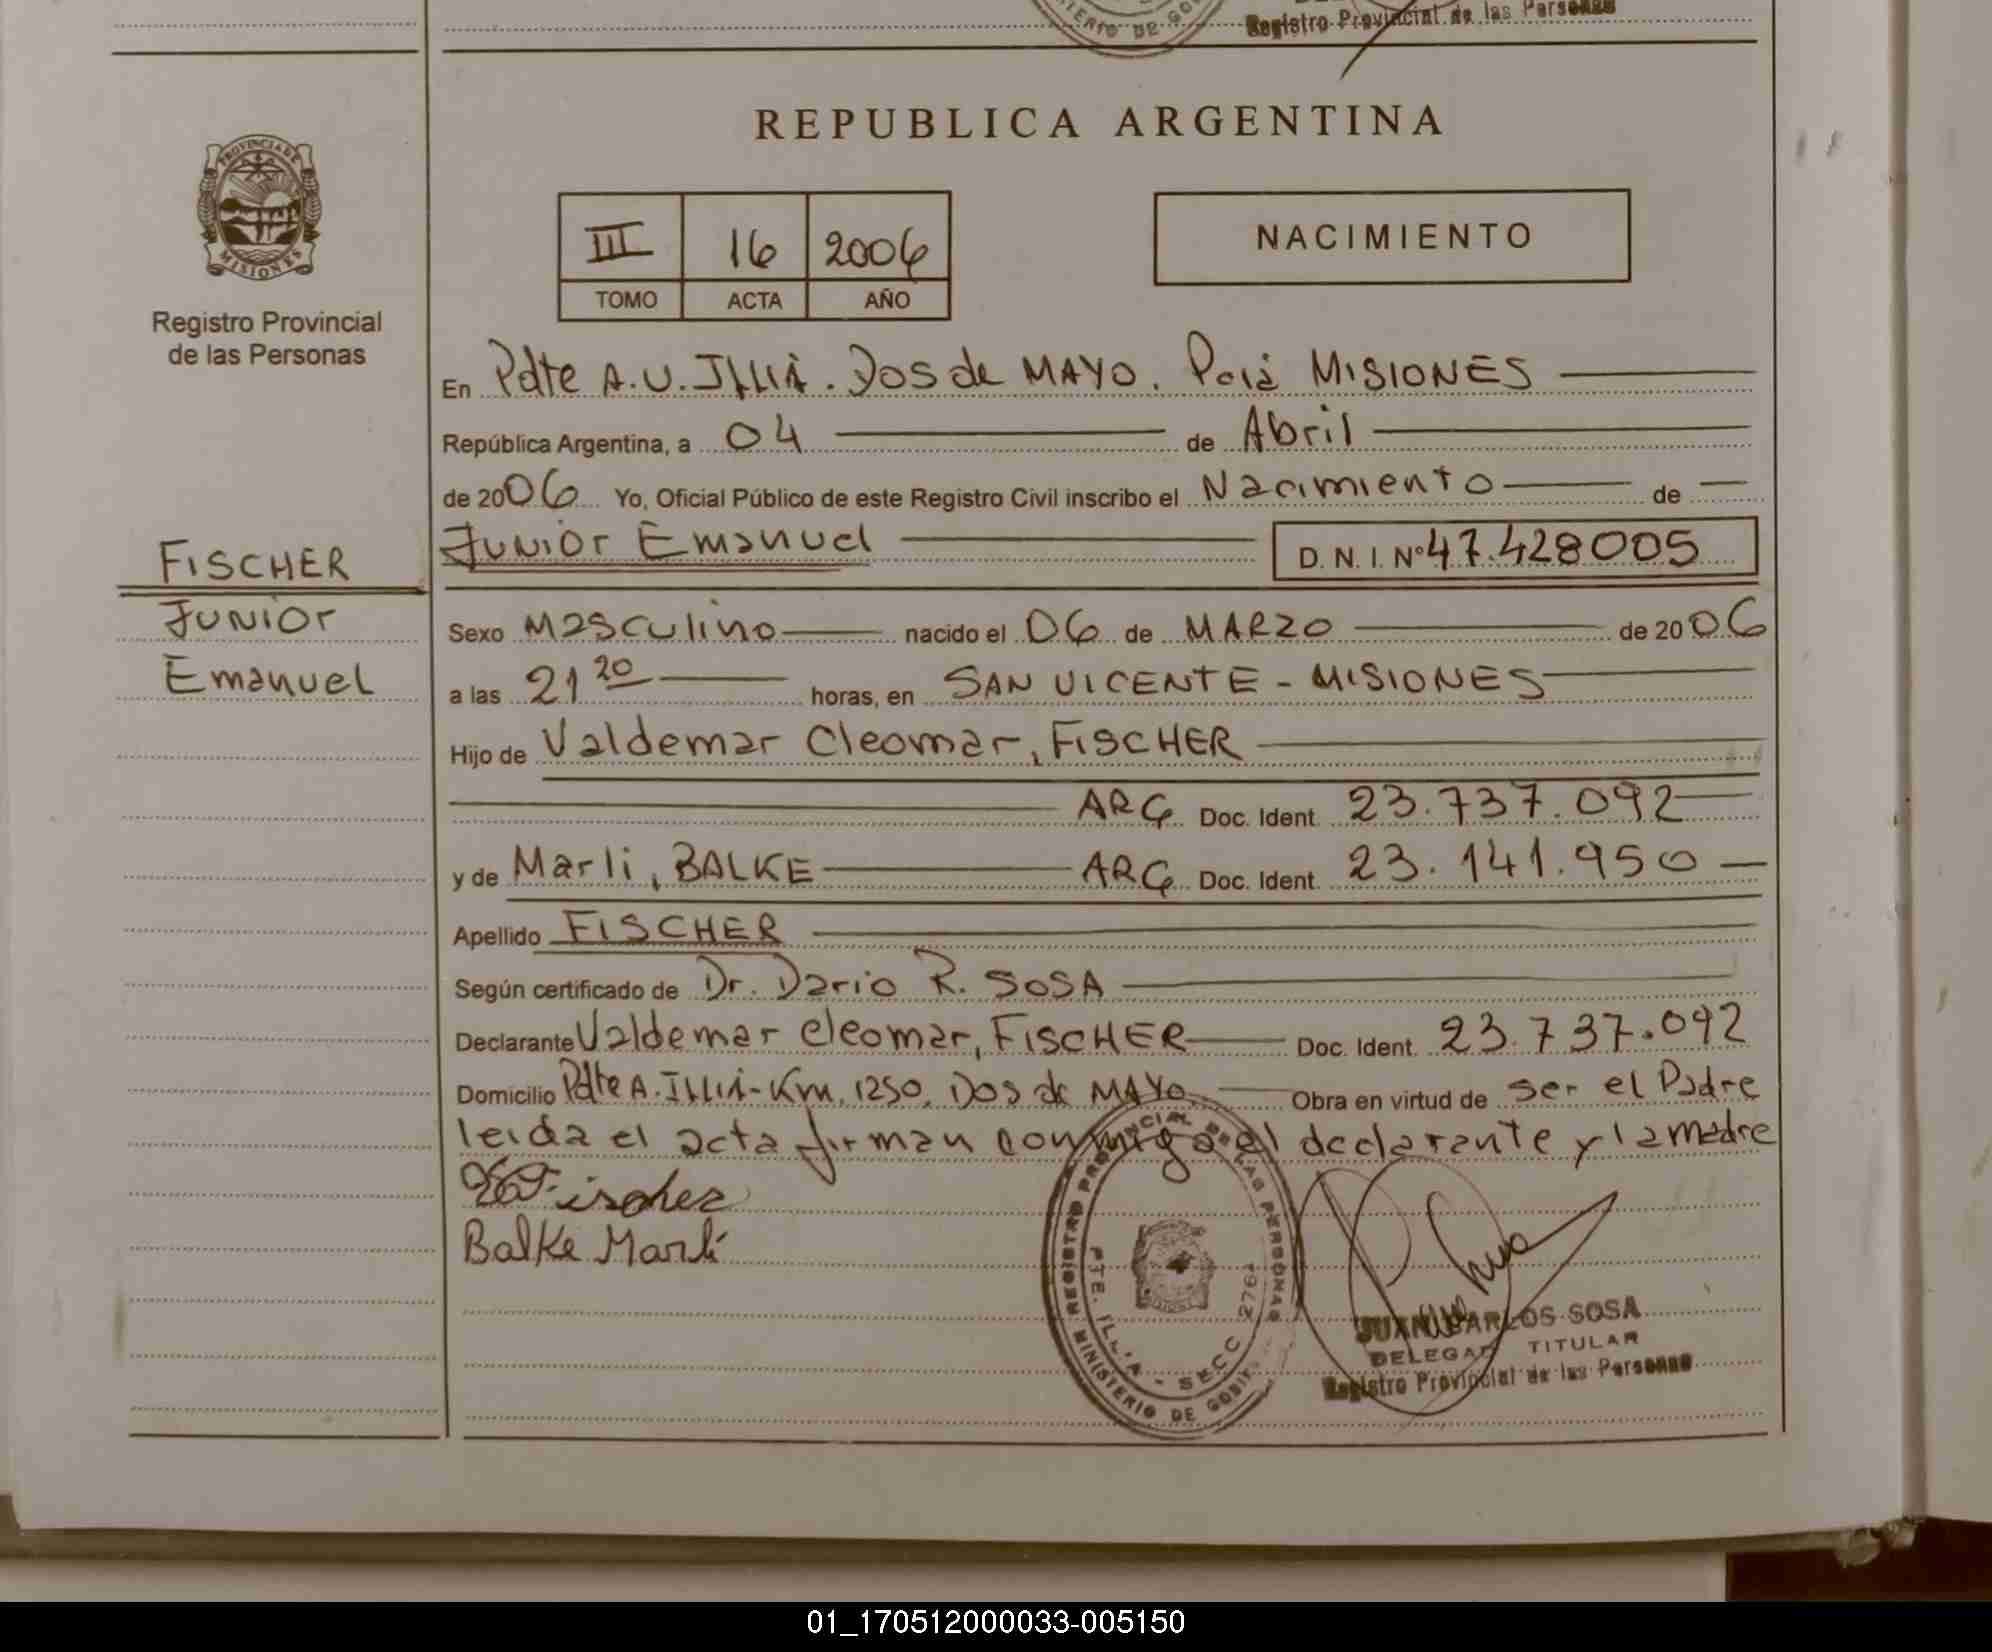 Registro Provincial de las Personas
REPUBLICA ARGENTINA
PROVINCIA DE
MISIONES
Registro Provincial
de las Personas
III 16 2006
TOMO ACTA AÑO
NACIMIENTO
En Pdte A.U. Illia. Dos de MAYO. Pcia MISIONES
República Argentina, a 04 de Abril
de 2006 Yo, Oficial Público de este Registro Civil inscribo el Nacimiento de
FISCHER
Junior
Emanuel
Junior Emanuel D. N. I. Nº 47.428005
Sexo Masculino nacido el 06 de MARZO de 2006
a las 21 20 horas, en SAN VICENTE - MISIONES
Hijo de Valdemar Cleomar, FISCHER
ARG Doc. Ident. 23.737.092
y de Marli, BALKE ARG Doc. Ident. 23.141.950
Apellido FISCHER
Según certificado de Dr. Dario R. SOSA
Declarante Valdemar Cleomar, FISCHER Doc. Ident. 23.737.092
Domicilio Pdte A. Illia - Km. 1250. Dos de MAYO. Obra en virtud de ser el Padre
leida el acta firman conmigo el declarante y la madre
Fischer
Balke Marli
REGISTRO PROVINCIAL DE LAS PERSONAS
PTE. ILLIA - SECC 2764
MINISTERIO DE GOBIE
JUAN CARLOS SOSA
DELEGADO TITULAR
Registro Provincial de las Personas
01_170512000033-005150